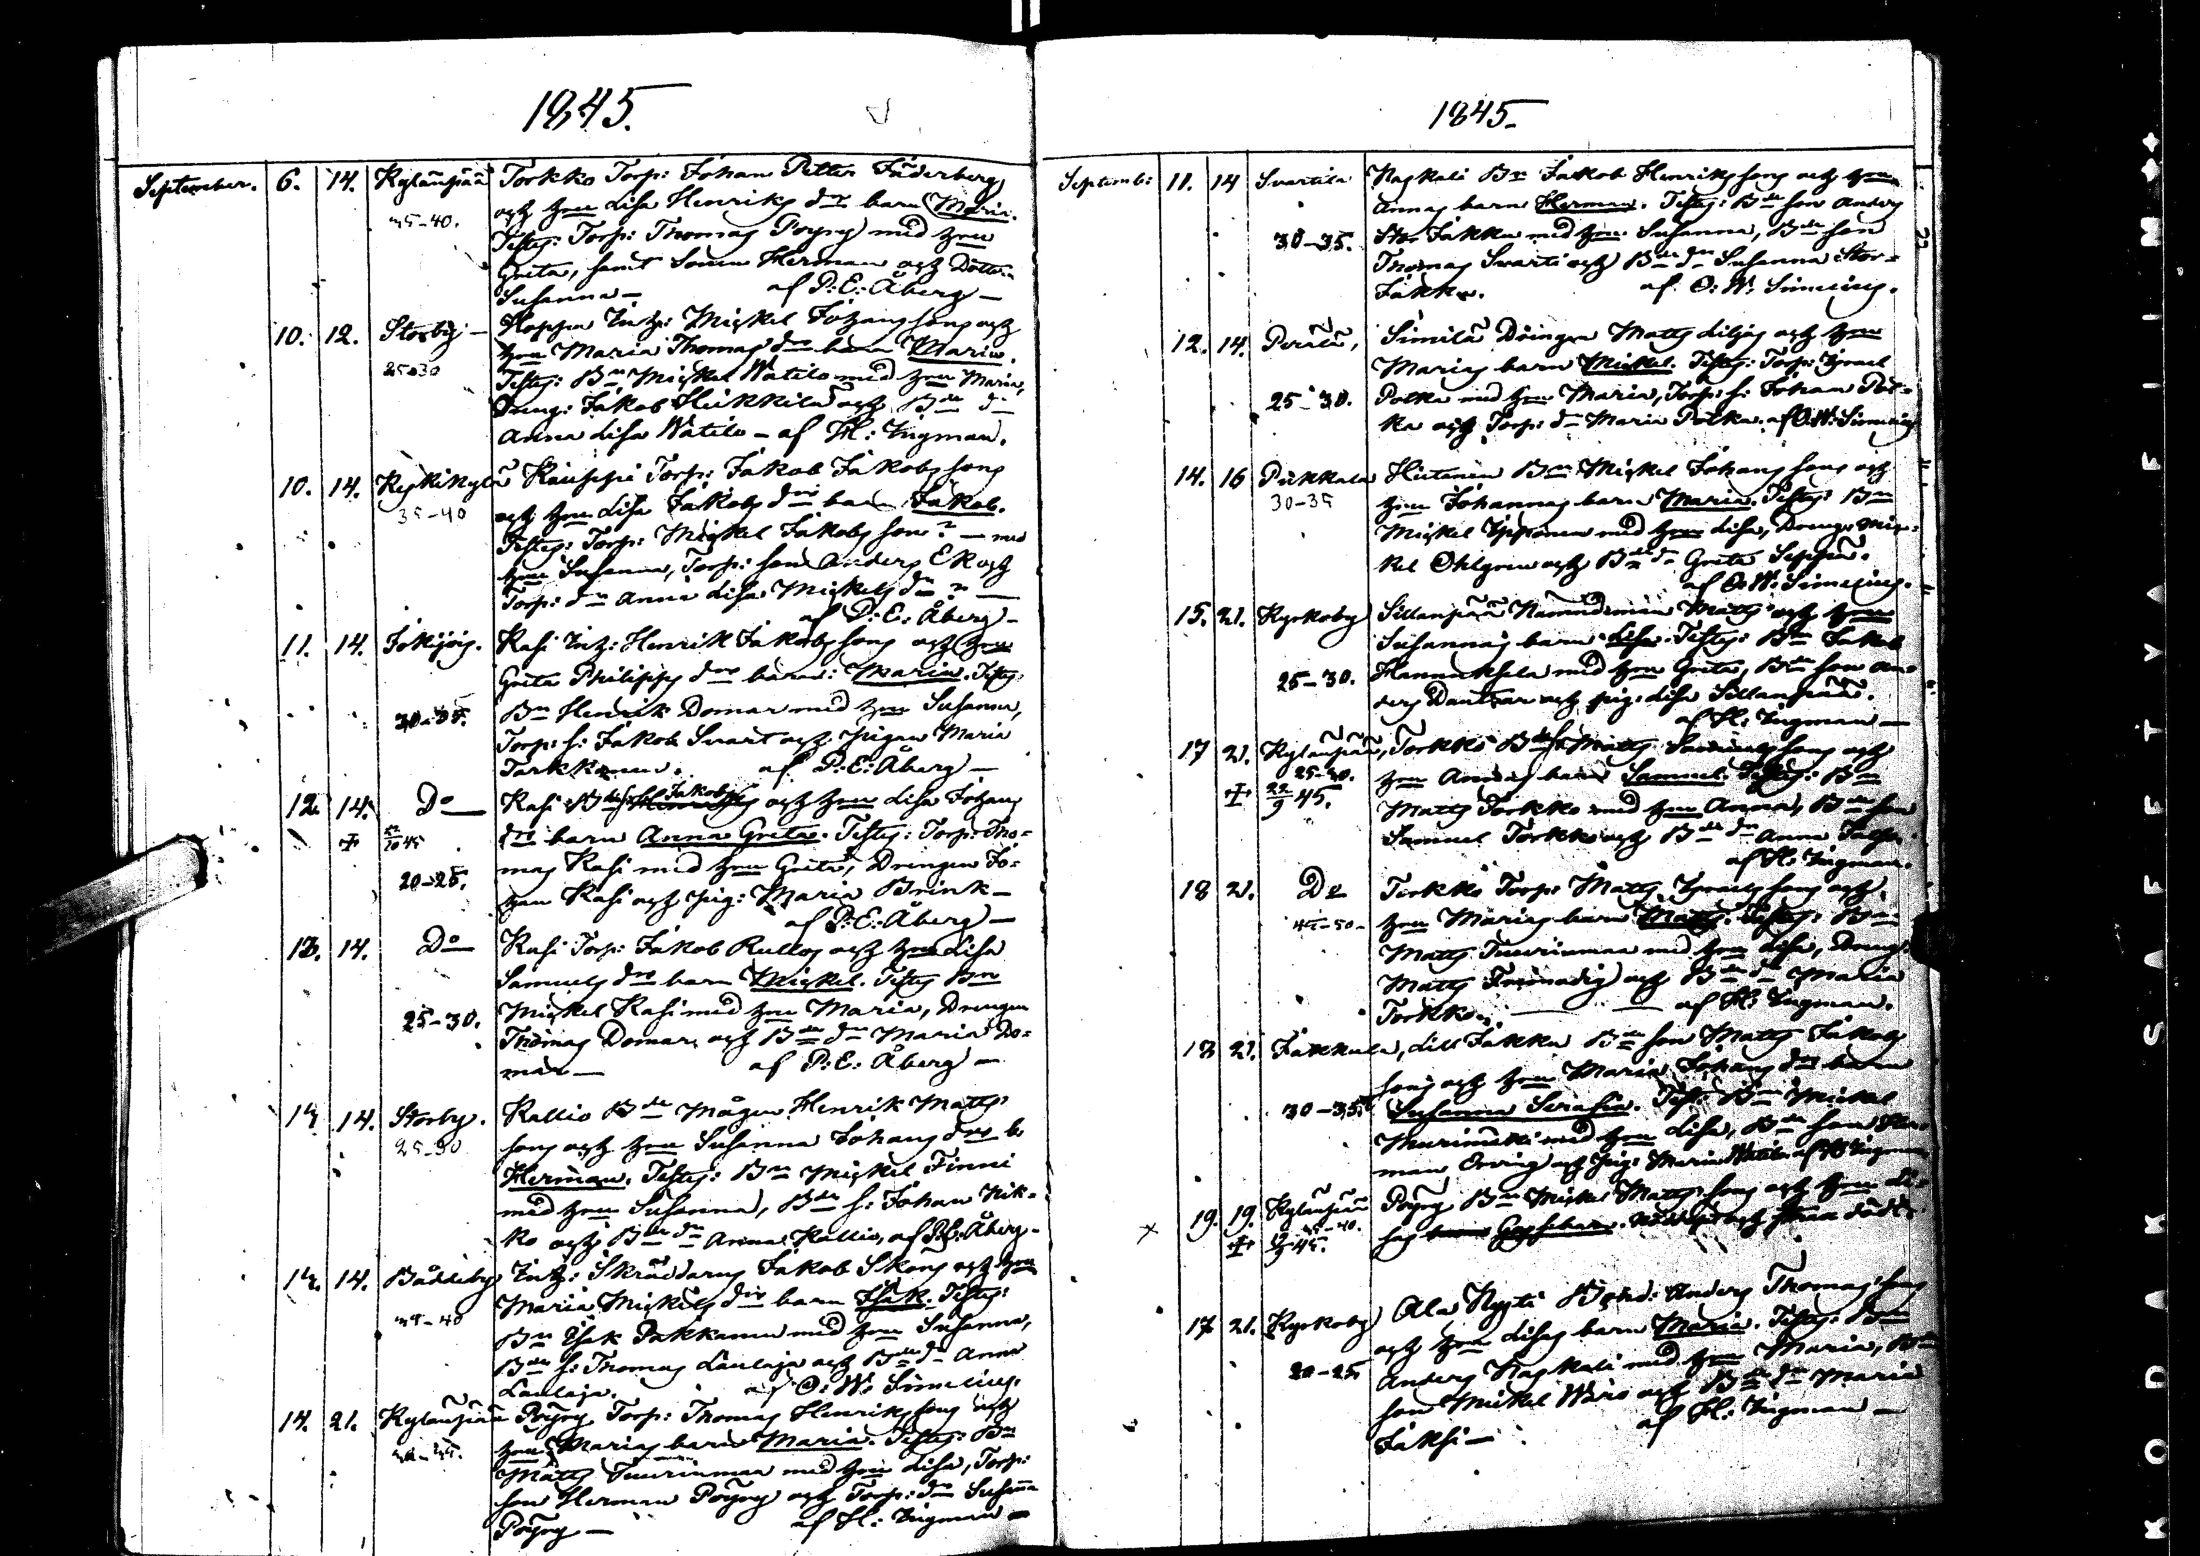 1845.
September. 6. 14. Kylänpää Torkko Torp: Johan Petter Säderberg
och hu Lisa Henriks drs barn Maria.
35-40.
Testes: Torp: Thomas Pöyry med hu
Greta, samt Sonen Herman och Dottern
Susanna — af P: E: Åberg —
10. 12. Storby — Hoppa Inh: Michel Johanssons och
hu Maria Thomas drs barn Maria.
25-30
Testes: Bn Michel Watilo med hu Maria,
Dreng: Jakob Heikkilä och Bde dr
Anna Lisa Watilo — af H: Ingman.
10. 14. Keskikylä Kauppi Torp: Jakob Jakobs sons
35-40
och hu Lisa Jakobs drs barn Jakob.
Testes: Torp: Michel Jakobs son ? — med
hu Susanna, Torp: son Anders Ek och
Torp: dr Anna Lisa Michels dr ? —
af P: E: Åberg —
11. 14. Jokipii. Rasi Inh: Henrik Jakobs sons och hu
Greta Philipps drs barn: Maria. Testes
30-35.
Bn Henrik Domar med hu Susanna,
Torp: s: Jakob Svart och Pigan Maria
Tarkkanen. af P: E: Åberg —
12. 14. Do — Rasi Jakobs och hu Lisa Johans
drs barn Anna Greta. Testes: Torp: Tho=
20-25.
mas Rasi med hu Greta, Drengen Jo=
han Rasi och Pig: Maria Brink —
af P: E: Åberg —
13. 14. Do — Rasi Torp: Jakob Rullos och hu Lisa
Samuels drs barn Michel. Testes Bn
25-30.
Michel Rasi med hu Maria, Drengen
Thomas Domar, och Bde dr Maria Do=
mar — af P: E: Åberg —
14 14. Storby. Kallio Bde Mågen Henrik Matts
25-30
sons och hu Susanna Johans drs b.
Herman. Testes: Bn Michel Finni
med hu Susanna, Bde s: Johan Kik=
ko och Bde dr Anna Kallio, af P: E: Åberg —
14. 14. Båddeby Inh: Skräddarns Jakob Skog och hu
Maria Michels drs barn Isak. Testes:
35-40
Bn Isak Pakkanen med hu Susanna,
Bde s: Thomas Laulaja och Bde dr Anna
Laulaja. af O: W: Simelius.
14. 21. Kylänpää Pöyry Torp: Thomas Henriks sons och
hu Marias barn Maria. Testes: Bn
Matts Tuurinmaa med hu Lisa, Torp:
son Herman Pöyry och Torp: dr Susanna
Pöyry — af H: Ingman —
1845.
Septemb: 11. 14 Svartila Naskali Bn Jakob Henriks sons och hu
Annas barn Herman. Testes: Bde son Anders
30-35.
Stor Jakku med hu Susanna, Bde son
Thomas Svarti och Bde dr Susanna Stor=
Jakku. af O: W: Simelius.
12. 14. Perälä, Similä Drängen Matts Liljas och hu
Marias barn Michel. Testes: Torp: Israel
25-30.
Polka med hu Maria, Torp: s: Johan Pol=
ka och Torp: dr Maria Polka. af O: W: Simelius
14. 16 Pukkala Hietanen Bn Michel Johans sons och
30-35
hu Johannas barn Maria. Testes: Bn
Michel Ypponen med hu Lisa, Dreng: Mic=
kel Ohlgren och Bde dr Greta Seppä.
af O: W: Simelius.
15. 21. Kyrkoby Sillanpää Nämndeman Matts och hu
Susannas barn Lisa. Testes: Bn Jakob
25-30.
Hannuksela med hu Greta, Bde son An=
ders Dantsar och Pig: Lisa Sillanpää.
af H: Ingman —
17 21. Kylänpää, Torkko Bde s: Matts Samuels sons och
25-30.
hu Annas barn Samuel. Testes: Bn
22/9 45.
Matts Torkko med hu Anna, Bde son
Samuel Torkko och Bde dr Anna
af H: Ingman.
18 21. Do Torkko Torp: Matts Israels sons och
45-50-
hu Marias barn Matts. Testes: Bn
Matts Tuurinmaa med hu Lisa, Dreng:
Matts och Bde dr Maria
Torkko. — af H: Ingman.
18 21. Jakkula, Lill Jakku Bde son Matts Jakobs
sons och hu Maria Johans drs barn
30-35.
Susanna Serafia. Test: Bn Michel
med hu Lisa, Bde son Her=
man och Pig: Maria Watilo af H: Ingman
19. 19. Kylänpää Pöyry Bn Michel Matts sons och hu Li=
35-40.
sas barn Gossebarn. Nöddöpt och straxt dödt.
17 21. Kyrkoby Ala Kysti Bond: Anders Thomas sons
och hu Lisas barn Maria. Testes: Bn
20-25
Anders Naskali med hu Maria, Bde
son Michel Wiro och Bde dr Maria
Jaksi — af H: Ingman —
KODAK SAFETY FILM